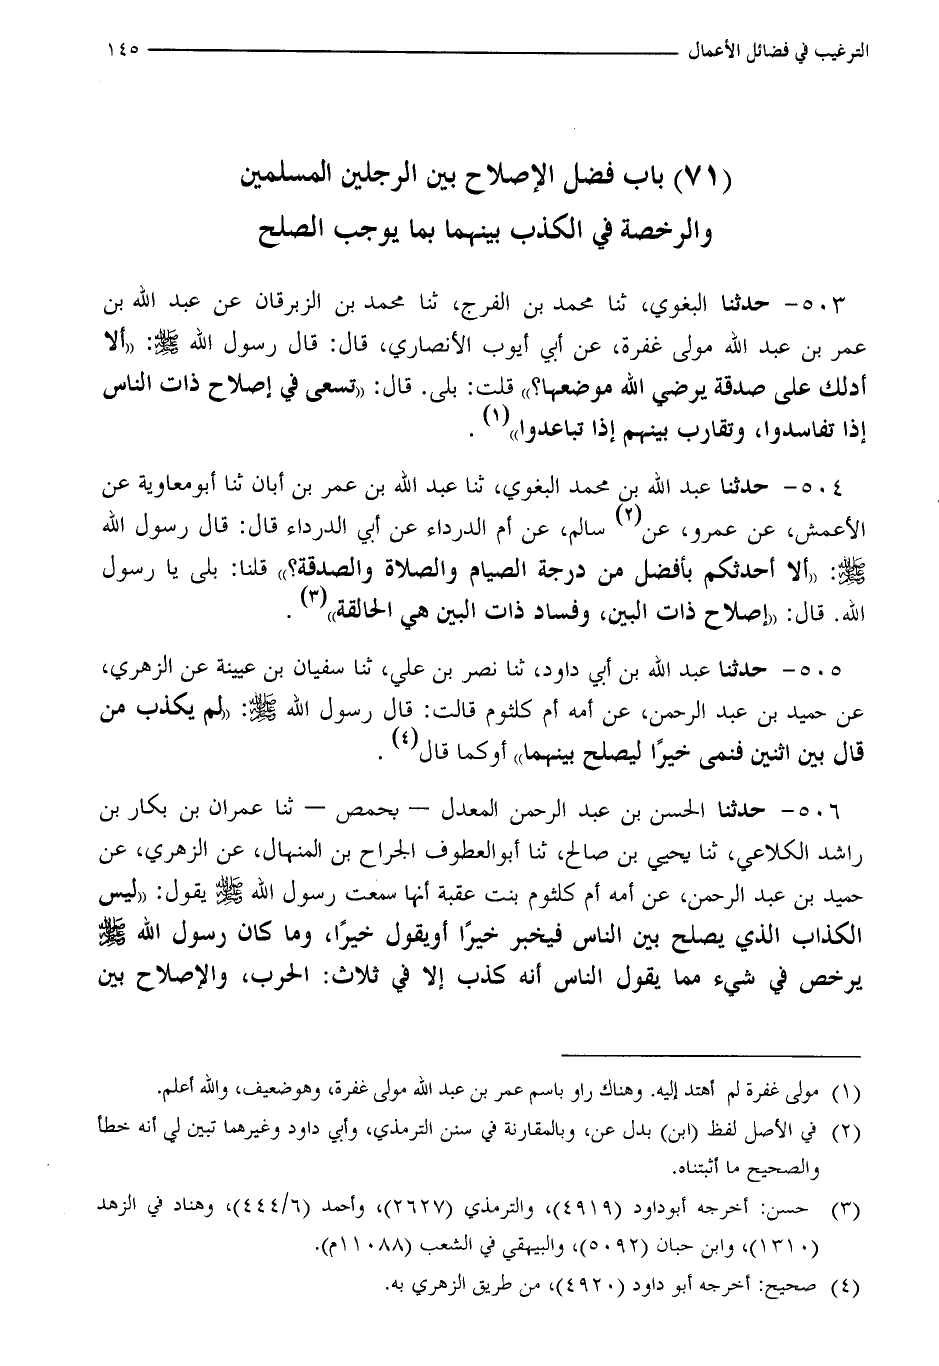 الترغيب في فضائل الأعمال ١٤٥
(٧١) باب فضل الإصلاح بين الرجلين المسلمين
والرخصة في الكذب بينهما بما يوجب الصلح
٥٠٣- حدثنا البغوي، ثنا محمد بن الفرج، ثنا محمد بن الزبرقان عن عبد الله بن
عمر بن عبد الله مولى غفرة، عن أبي أيوب الأنصاري، قال: قال رسول الله ﷺ: «ألا
أدلك على صدقة يرضي الله موضعها؟» قلت: بلى. قال: «تسعى في إصلاح ذات الناس
إذا تفاسدوا، وتقارب بينهم إذا تباعدوا»(١) .
٥٠٤- حدثنا عبد الله بن محمد البغوي، ثنا عبد الله بن عمر بن أبان ثنا أبومعاوية عن
الأعمش، عن عمرو، عن(٢) سالم، عن أم الدرداء عن أبي الدرداء قال: قال رسول الله
ﷺ: «ألا أحدثكم بأفضل من درجة الصيام والصلاة والصدقة؟» قلنا: بلى يا رسول
الله. قال: «إصلاح ذات البين، وفساد ذات البين هي الحالقة»(٣) .
٥٠٥- حدثنا عبد الله بن أبي داود، ثنا نصر بن علي، ثنا سفيان بن عيينة عن الزهري،
عن حميد بن عبد الرحمن، عن أمه أم كلثوم قالت: قال رسول الله ﷺ: «لم يكذب من
قال بين اثنين فنمى خيرًا ليصلح بينهما» أوكما قال(٤) .
٥٠٦- حدثنا الحسن بن عبد الرحمن المعدل – بحمص – ثنا عمران بن بكار بن
راشد الكلاعي، ثنا يحيى بن صالح، ثنا أبوالعطوف الجراح بن المنهال، عن الزهري، عن
حميد بن عبد الرحمن، عن أمه أم كلثوم بنت عقبة أنها سمعت رسول الله ﷺ يقول: «ليس
الكذاب الذي يصلح بين الناس فيخبر خيرًا أويقول خيرًا، وما كان رسول الله ﷺ
يرخص في شيء مما يقول الناس أنه كذب إلا في ثلاث: الحرب، والإصلاح بين
(١) مولى غفرة لم أهتد إليه. وهناك راو باسم عمر بن عبد الله مولى غفرة، وهوضعيف، والله أعلم.
(٢) في الأصل لفظ (ابن) بدل عن، وبالمقارنة في سنن الترمذي، وأبي داود وغيرهما تبين لي أنه خطأ
والصحيح ما أثبتناه.
(٣) حسن: أخرجه أبوداود (٤٩١٩)، والترمذي (٢٦٢٧)، وأحمد (٤٤٤/٦)، وهناد في الزهد
(١٣١٠)، وابن حبان (٥٠٩٢)، والبيهقي في الشعب (١١٠٨٨م).
(٤) صحيح: أخرجه أبو داود (٤٩٢٠)، من طريق الزهري به.